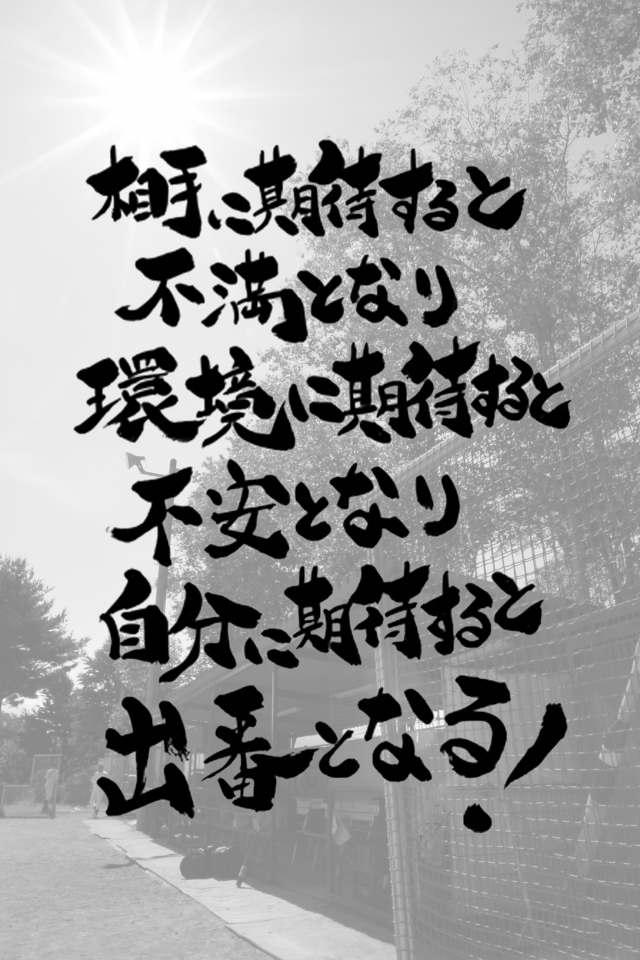 相手に期待すると
不満となり
環境に期待すると
不安となり
自分に期待すると
出番となる!